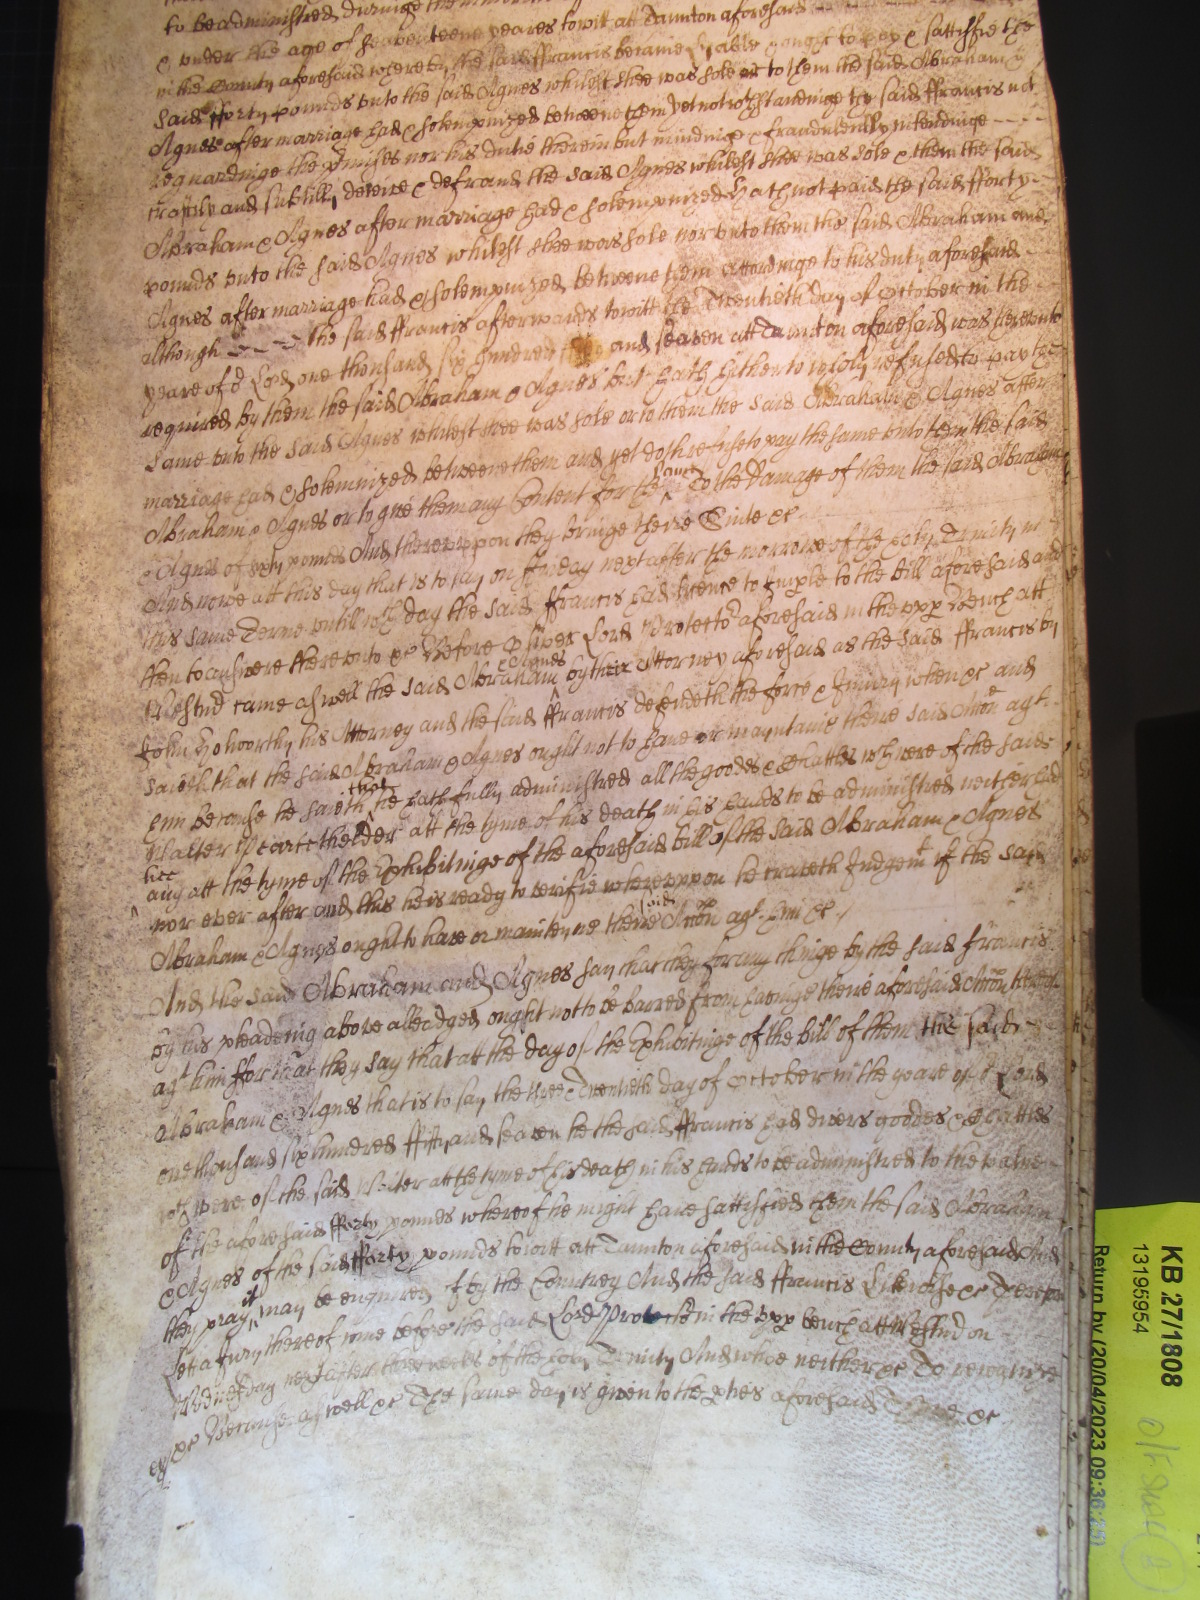 to be administred, duringe the minority
& under the age of seaventeene yeares towitt att Taunton aforesaid
in the County aforesaid whereby the said ffrancis became lyable & ought to pay & sattisfie the
said fforty pounds unto the said Agnes whilest shee was sole or to them the said Abraham &
Agnes after marriage had & solempnized betweene them yet notwithstandinge the said ffrancis not
reguardinge the pmises nor his dutie therein but mindinge & fraudulently intendinge
craftily and subtilly deceive & defraud the said Agnes whilest shee was sole & them the said
Abraham & Agnes after marriage had & solempnized hath not paid the said fforty
pounds unto the said Agnes whilest shee was sole nor unto them the said Abraham and
Agnes after marriage had & solempnized betweene them accordinge to his duty aforesaid
although the said ffrancis afterwards towitt the Twentieth day of October in the
yeare of or Lord one thousand six hundred and seaven att Taunton aforesaid was thereunto
required by them the said Abraham & Agnes but hath hitherto wholy refused to pay the
same unto the said Agnes whilest shee was sole or to them the said Abraham & Agnes after
marriage had & solemnized betweene them and yet doth refuse to pay the same unto them the said
Abraham & Agnes or to give them any Content for the same To the Damage of them the said Abraham
& Agnes of sixty pounds And thereuppon they bringe theire Suite &c
And nowe att this day that is to say on ffriday next after the morrowe of the holy Trinity in
this same Terme untill wch day the said ffrancis had licence to Imple to the bill aforesaid and
then to answere thereunto &c Before Oliver Lord Protector aforesaid in the upp Bench att
Westmr came aswell the said Abraham & Agnes by their Attorney aforesaid as the said ffrancis by
John Holworthy his Attorney and the said ffrancis defendeth the force & Injury when &c and
saieth that the said Abraham & Agnes ought not to have or mayntaine theire said Accon agt
him because he saieth that he hath fully administred all the goods & Chattles wch were of the said
Walter att the tyme of his death in his hands to be administred neither had
hee any att the tyme of the Exhibitinge of the aforesaid bill of the said Abraham & Agnes
nor ever after and this he is ready to verifie whereuppon he craveth Judgemt if the said
Abraham & Agnes ought to have or mainteyne theire said Accon agt him &c
And the said Abraham and Agnes say that they for any thinge by the said ffrancis
by his pleadeing above alleadged ought not to be barred from haveinge theire aforesaid Accon thereof
agt him ffor that they say that att the day of the Exhibitinge of the bill of them the said
Abraham & Agnes that is to say the three & Twentieth day of October in the yeare of or Lord
one thousand six hundred ffifty and seaven he the said ffrancis had divers goodes & Chattles
wch were of the said Walter att the tyme of his death in his hands to be administred to the value
of the aforesaid fforty pounds whereof he might have sattisfied them the said Abraham
& Agnes of the said fforty pounds towitt att Taunton aforesaid in the County aforesaid And
they pray it may be enquired of by the Countrey And the said ffrancis likewise &c Therefore
Let a Jury thereof come before the said Lord Protector in the upp bench att Westmr on
Wednesday next after three weeks of the holy Trinity And whoe neither &c To recognize
&c Because aswell &c The same day is given to the pties aforesaid There &c
KB 27/1808
13195954
Return by (20/04/2023 09:36:25)